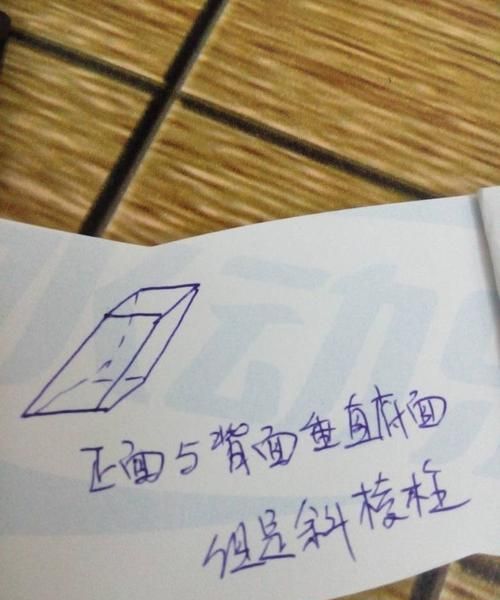 正面与背面垂直底面
但是斜棱柱
运动